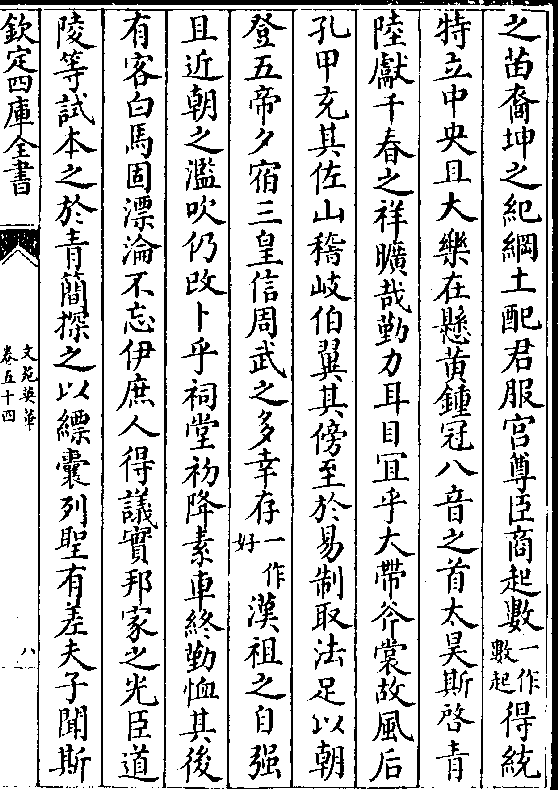 之苗裔坤之紀綱土配君服宫尊臣商起數一作數起得統
特立中央且大樂在懸黄鍾冠八音之首太昊斯啓青
陸獻千春之祥曠哉勤力耳目宜乎大帶斧裳故風后
孔甲充其佐山稽岐伯翼其傍至於易制取法足以朝
登五帝夕宿三皇信周武之多幸存一作好漢祖之自强
且近朝之濫吹仍改卜乎祠堂初降素車終勤恤其後
有客白馬固漂淪不忘伊庶人得議實邦家之光臣道
陵等試本之於青簡探之以縹囊列聖有差夫子聞斯
欽定四庫全書
文苑英華
卷五十四
八